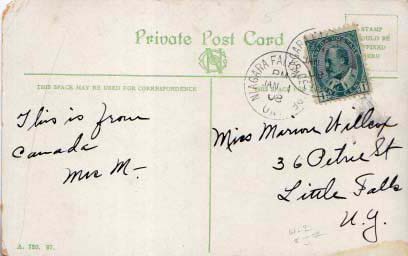 Private Post Card
STAMP
THIS SPACE MAY BE USED FOR CORRESPONDENCE
NIAGARA FALLS
PM
JAN
08
ONT
This is from
Canada
Mrs M-
Miss Marion Willcox
36 Petrie St
Little Falls
N.Y.
A. 720. 97.